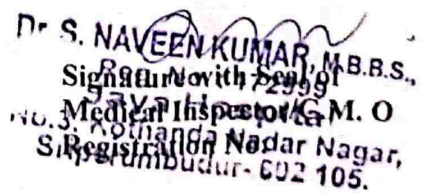 Dr. S. NAVEEN KUMAR, M.B.B.S.,
Signature with Seal of
Reg. No. 172999
Medical Inspector/G.M. O
No.3, Kothanda Nadar Nagar,
Registration No
Sriperumbudur- 602 105.